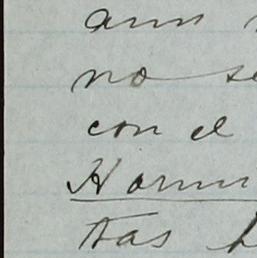 aun
no se
con el
Horm
tas